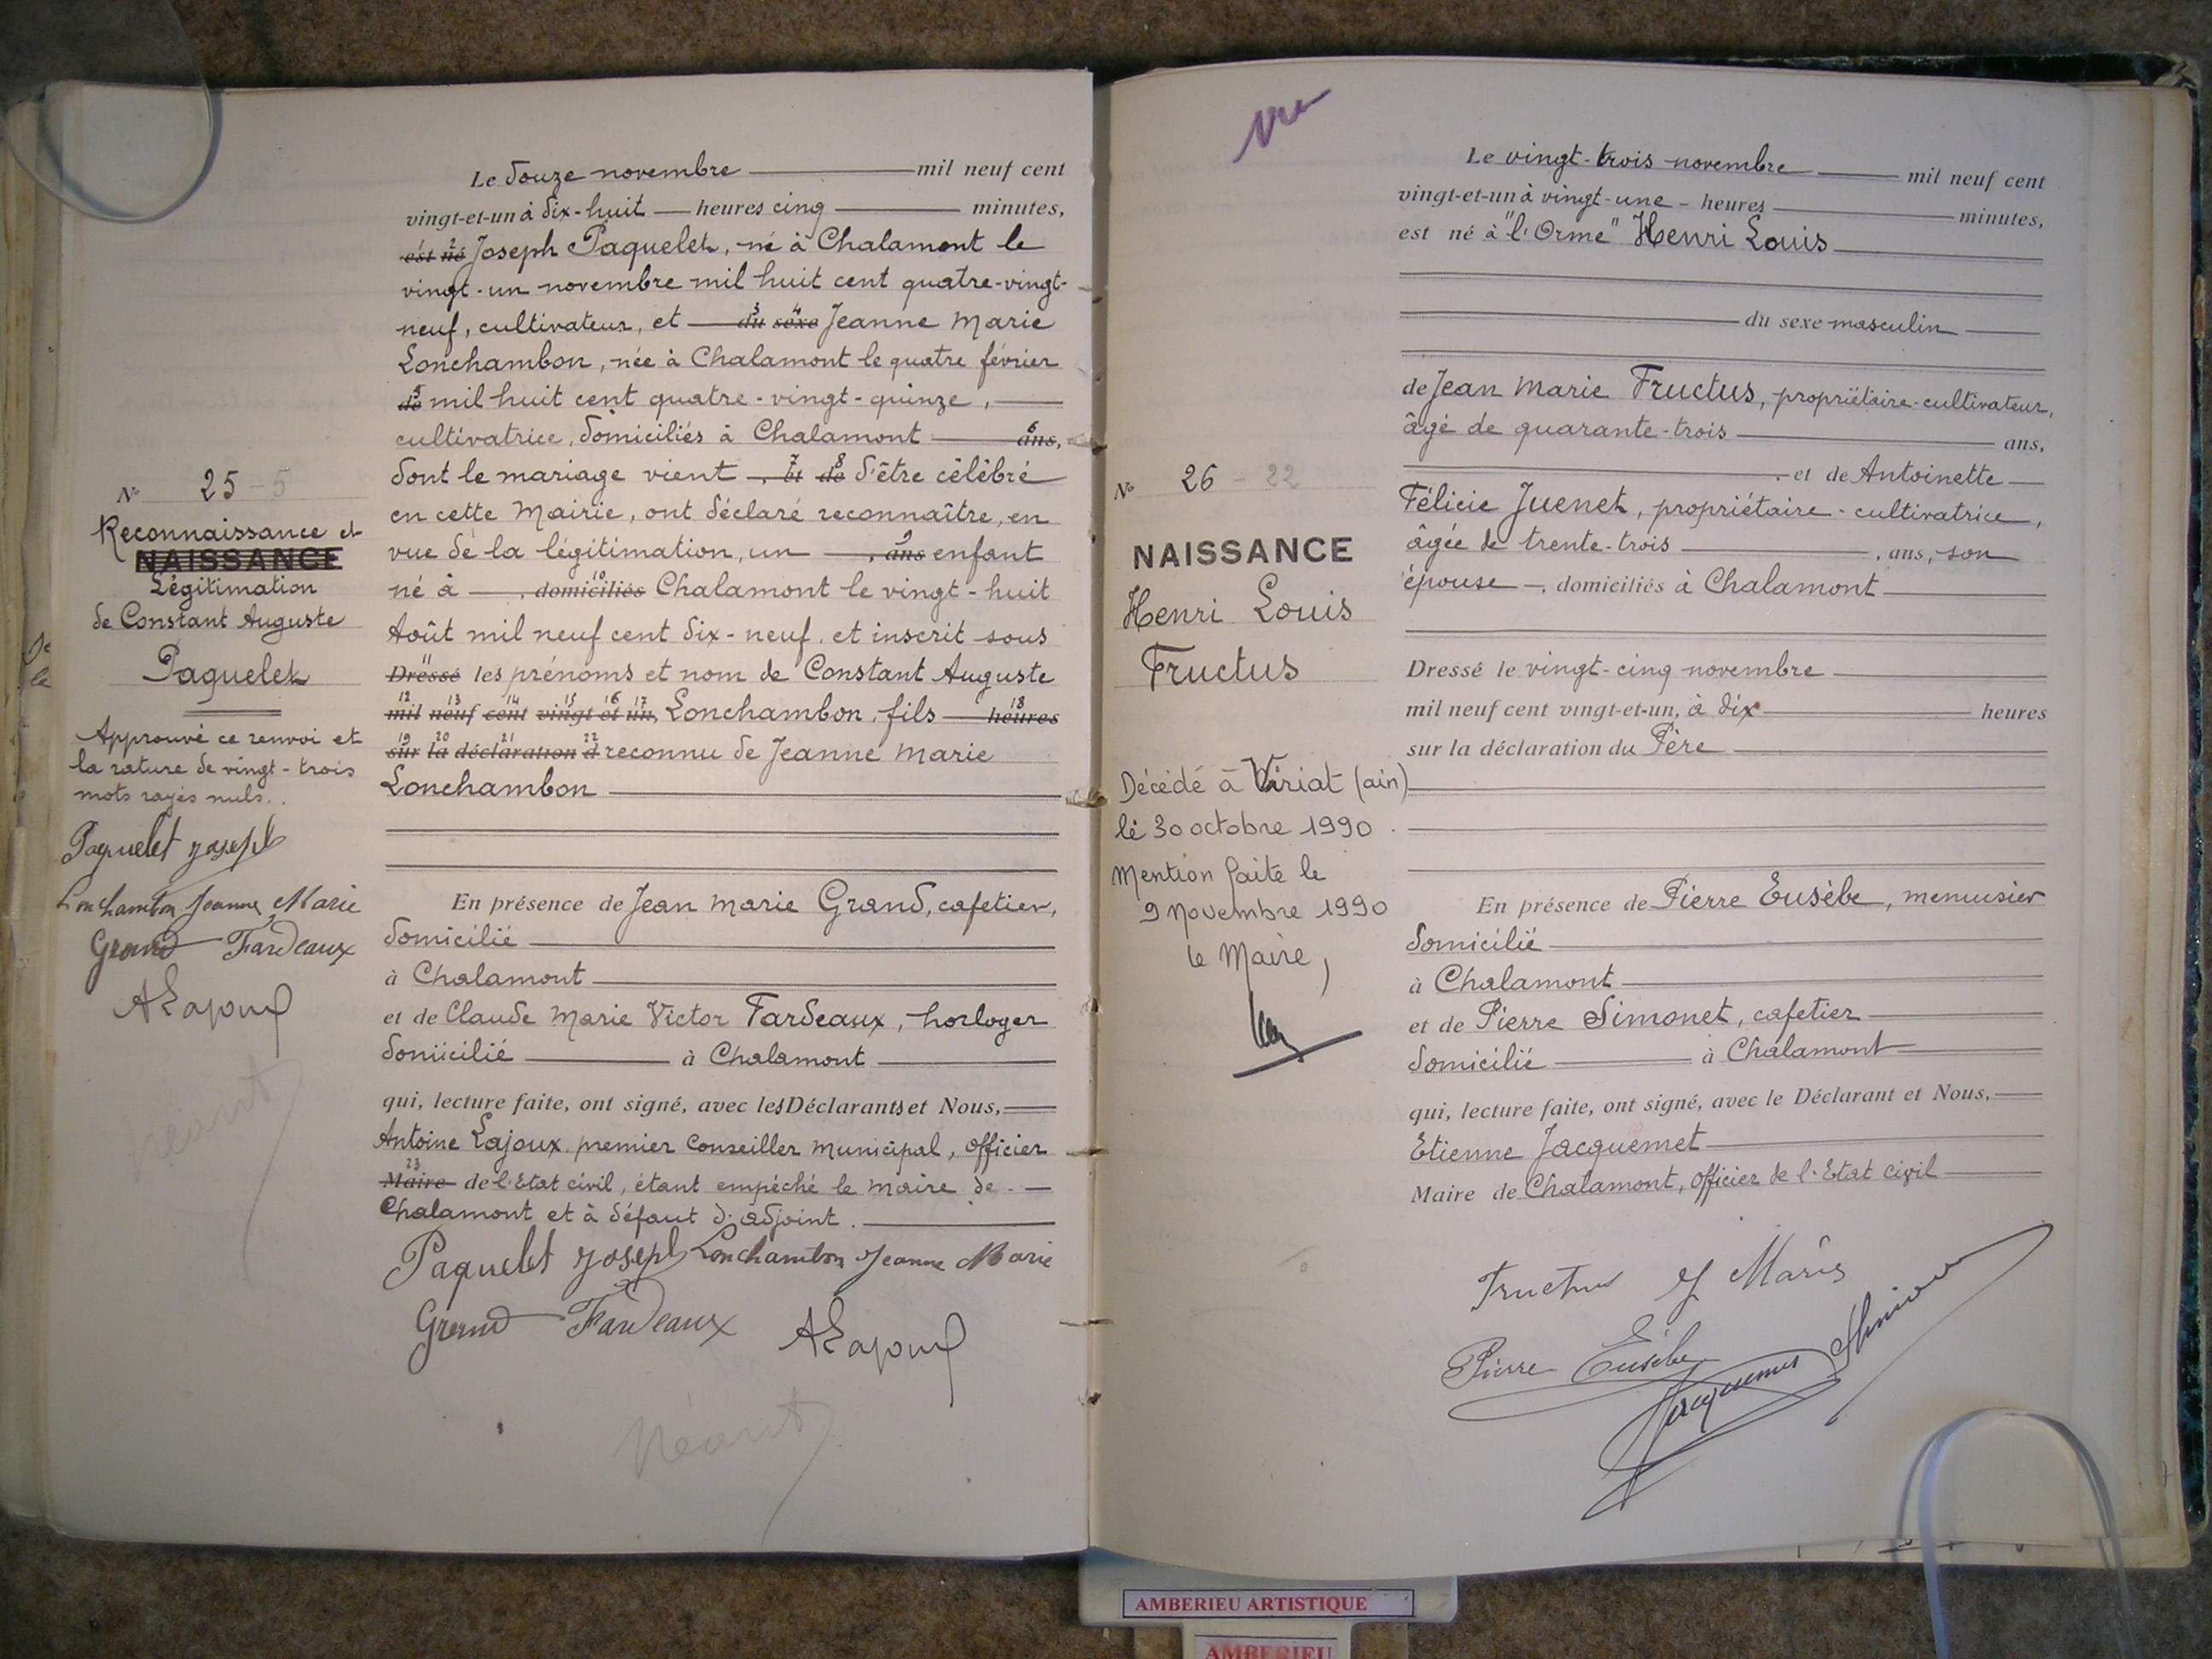 Le douze novembre mil neuf cent
vingt-et-un à dix-huit heures cinq minutes,
est né Joseph Paquelet, né à Chalamont le
vingt-un novembre mil huit cent quatre-vingt-
neuf, cultivateur, et du sexe Jeanne Marie
Lonchambon, née à Chalamont le quatre février
de mil huit cent quatre-vingt-quinze,
cultivatrice, domiciliés à Chalamont ans,
dont le mariage vient , et de d'être célébré
en cette Mairie, ont déclaré reconnaître, en
vue de la légitimation, un , ans enfant
né à , domiciliés Chalamont le vingt-huit
Août mil neuf cent dix-neuf, et inscrit sous
Dressé les prénoms et nom de Constant Auguste
mil neuf cent vingt et un, Lonchambon, fils heures
sur la déclaration d reconnu de Jeanne Marie
Lonchambon
En présence de Jean Marie Grand, cafetier,
domicilié
à Chalamont
et de Claude Marie Victor Fardeaux, horloger
domicilié à Chalamont
qui, lecture faite, ont signé, avec les Déclarants et Nous,
Antoine Lajoux, premier Conseiller municipal, officier
Maire de l'Etat civil, étant empêché le maire de
Chalamont et à défaut d'adjoint.
Paquelet Joseph Lonchambon Jeanne Marie
Grand Fardeaux A Lajoux
Néant
N° 25 - 5
Reconnaissance et
NAISSANCE
Légitimation
de Constant Auguste
Paquelet
Approuvé ce renvoi et
la rature de vingt-trois
mots rayés nuls.
Paquelet Joseph
Lonchambon Jeanne Marie
Grand Fardeaux
A Lajoux
néant
vu
Le vingt-trois novembre mil neuf cent
vingt-et-un à vingt-une heures minutes,
est né à "l'Orme" Henri Louis
du sexe masculin
de Jean Marie Fructus, propriétaire-cultivateur,
âgé de quarante-trois ans,
et de Antoinette
Félicie Juenet, propriétaire-cultivatrice,
âgée de trente-trois , ans, son
épouse , domiciliés à Chalamont
Dressé le vingt-cinq novembre
mil neuf cent vingt-et-un, à dix heures
sur la déclaration du Père
En présence de Pierre Eusèbe, menuisier
domicilié
à Chalamont
et de Pierre Simonet, cafetier
domicilié à Chalamont
qui, lecture faite, ont signé, avec le Déclarant et Nous,
Etienne Jacquemet
Maire de Chalamont, officier de l'Etat civil
Fructus J Marie
Pierre Eusèbe
N° 26 - 22
NAISSANCE
Henri Louis
Fructus
Décédé à Viriat (ain)
le 30 octobre 1990.
Mention faite le
9 Novembre 1990
le Maire,
AMBERIEU ARTISTIQUE
AMBERIEU